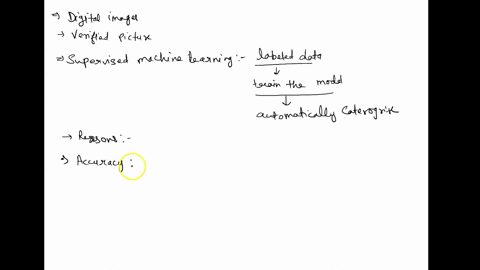 ⇒ Digital images
→ Verified picture
⇒ Supervised machine learning :- labeled data
↓
train the model
↓
automatically Caterogrix
→ Reasons :-
⇒ Accuracy :